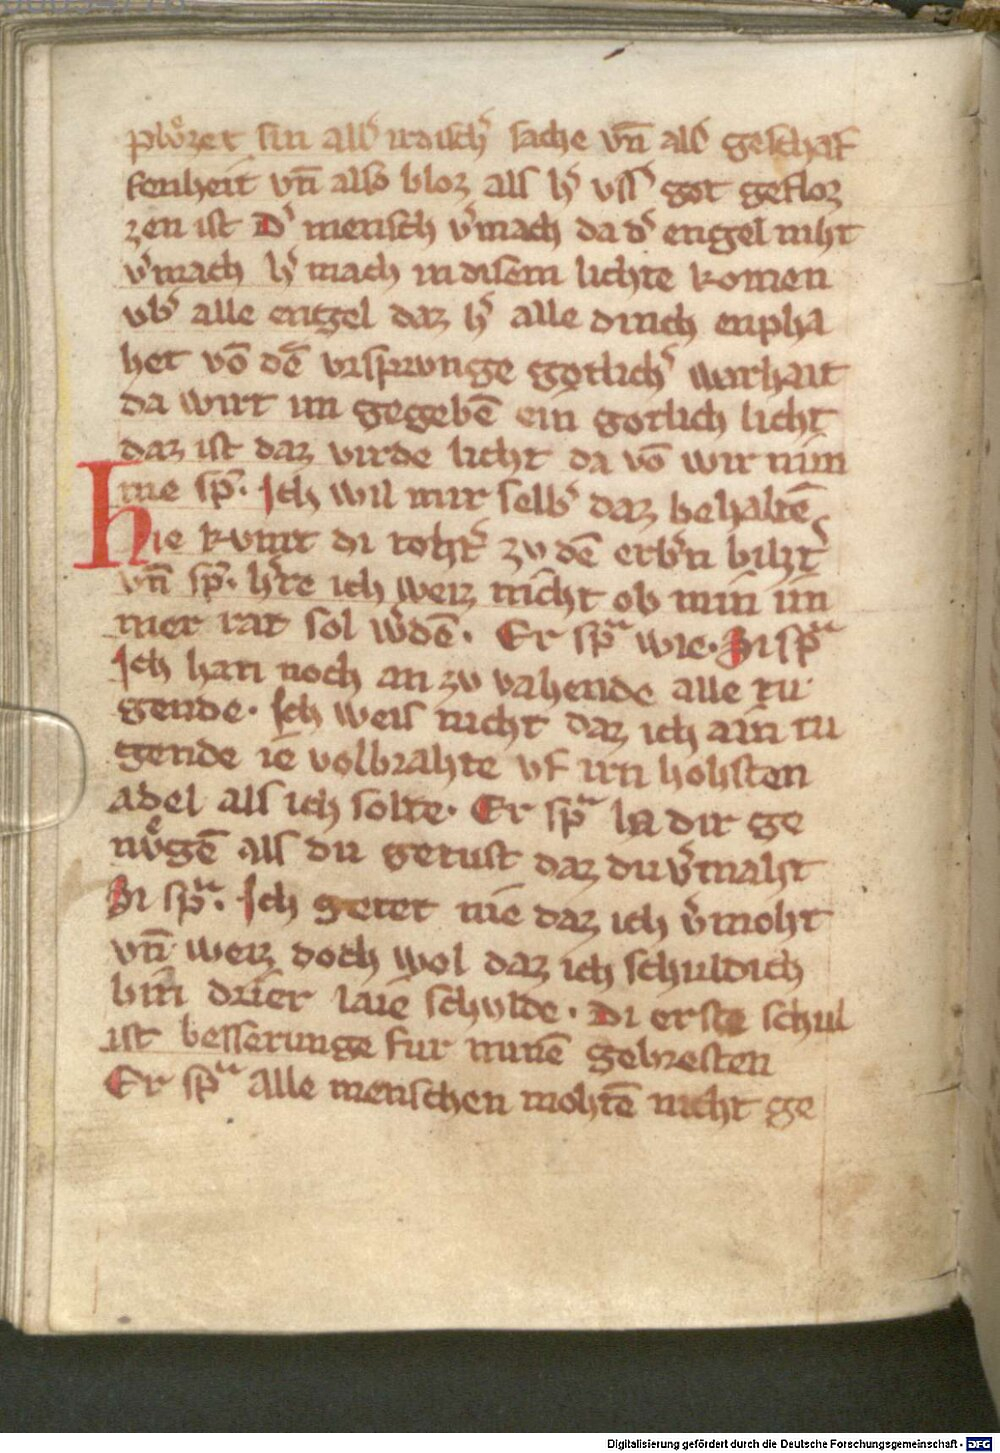 plozet sin allˀ irdischˀ sache vn̄ allˀ geschaf
fenheit vn̄ also bloz als hˀ vssˀ got gefloz
zen ist Dˀ mensch vˀmach da dˀ engel niht
vˀmach hˀ mach in disem lichte komen
vbˀ alle engel daz hˀ alle dinch enpha
het vō dē vrsprvnge gotlichˀ warhait
da wirt im gegebē ein gotlich licht
daz ist daz virde licht da vō wir nim
me sp̄. Ich wil mir selbˀ daz behaltē
hie kvmt di tohtˀ zv dē erbˀn bihtˀ
vn̄ sp̄. hˀre ich weiz nicht ob min im
mer rat sol wˀdē. Er spͣ wie. Si spͣ
Ich han noch an zv vahende alle tu
gende. Ich weis nicht daz ich ain tu
gende ie volbrahte vf irn hohsten
adel als ich solte. Er spͣ la dir ge
nv̊gē als du getust daz du vˀmaht
Si spͣ. Ich getet nie daz ich vˀmoht
vn̄ weiz doch wol daz ich schuldich
bin drier laie schvlde. Di erste schul
ist besserunge fur minē gebresten
Er spͣ alle menschen mohtē nicht ge
Digitalisierung gefördert durch die Deutsche Forschungsgemeinschaft - DFG